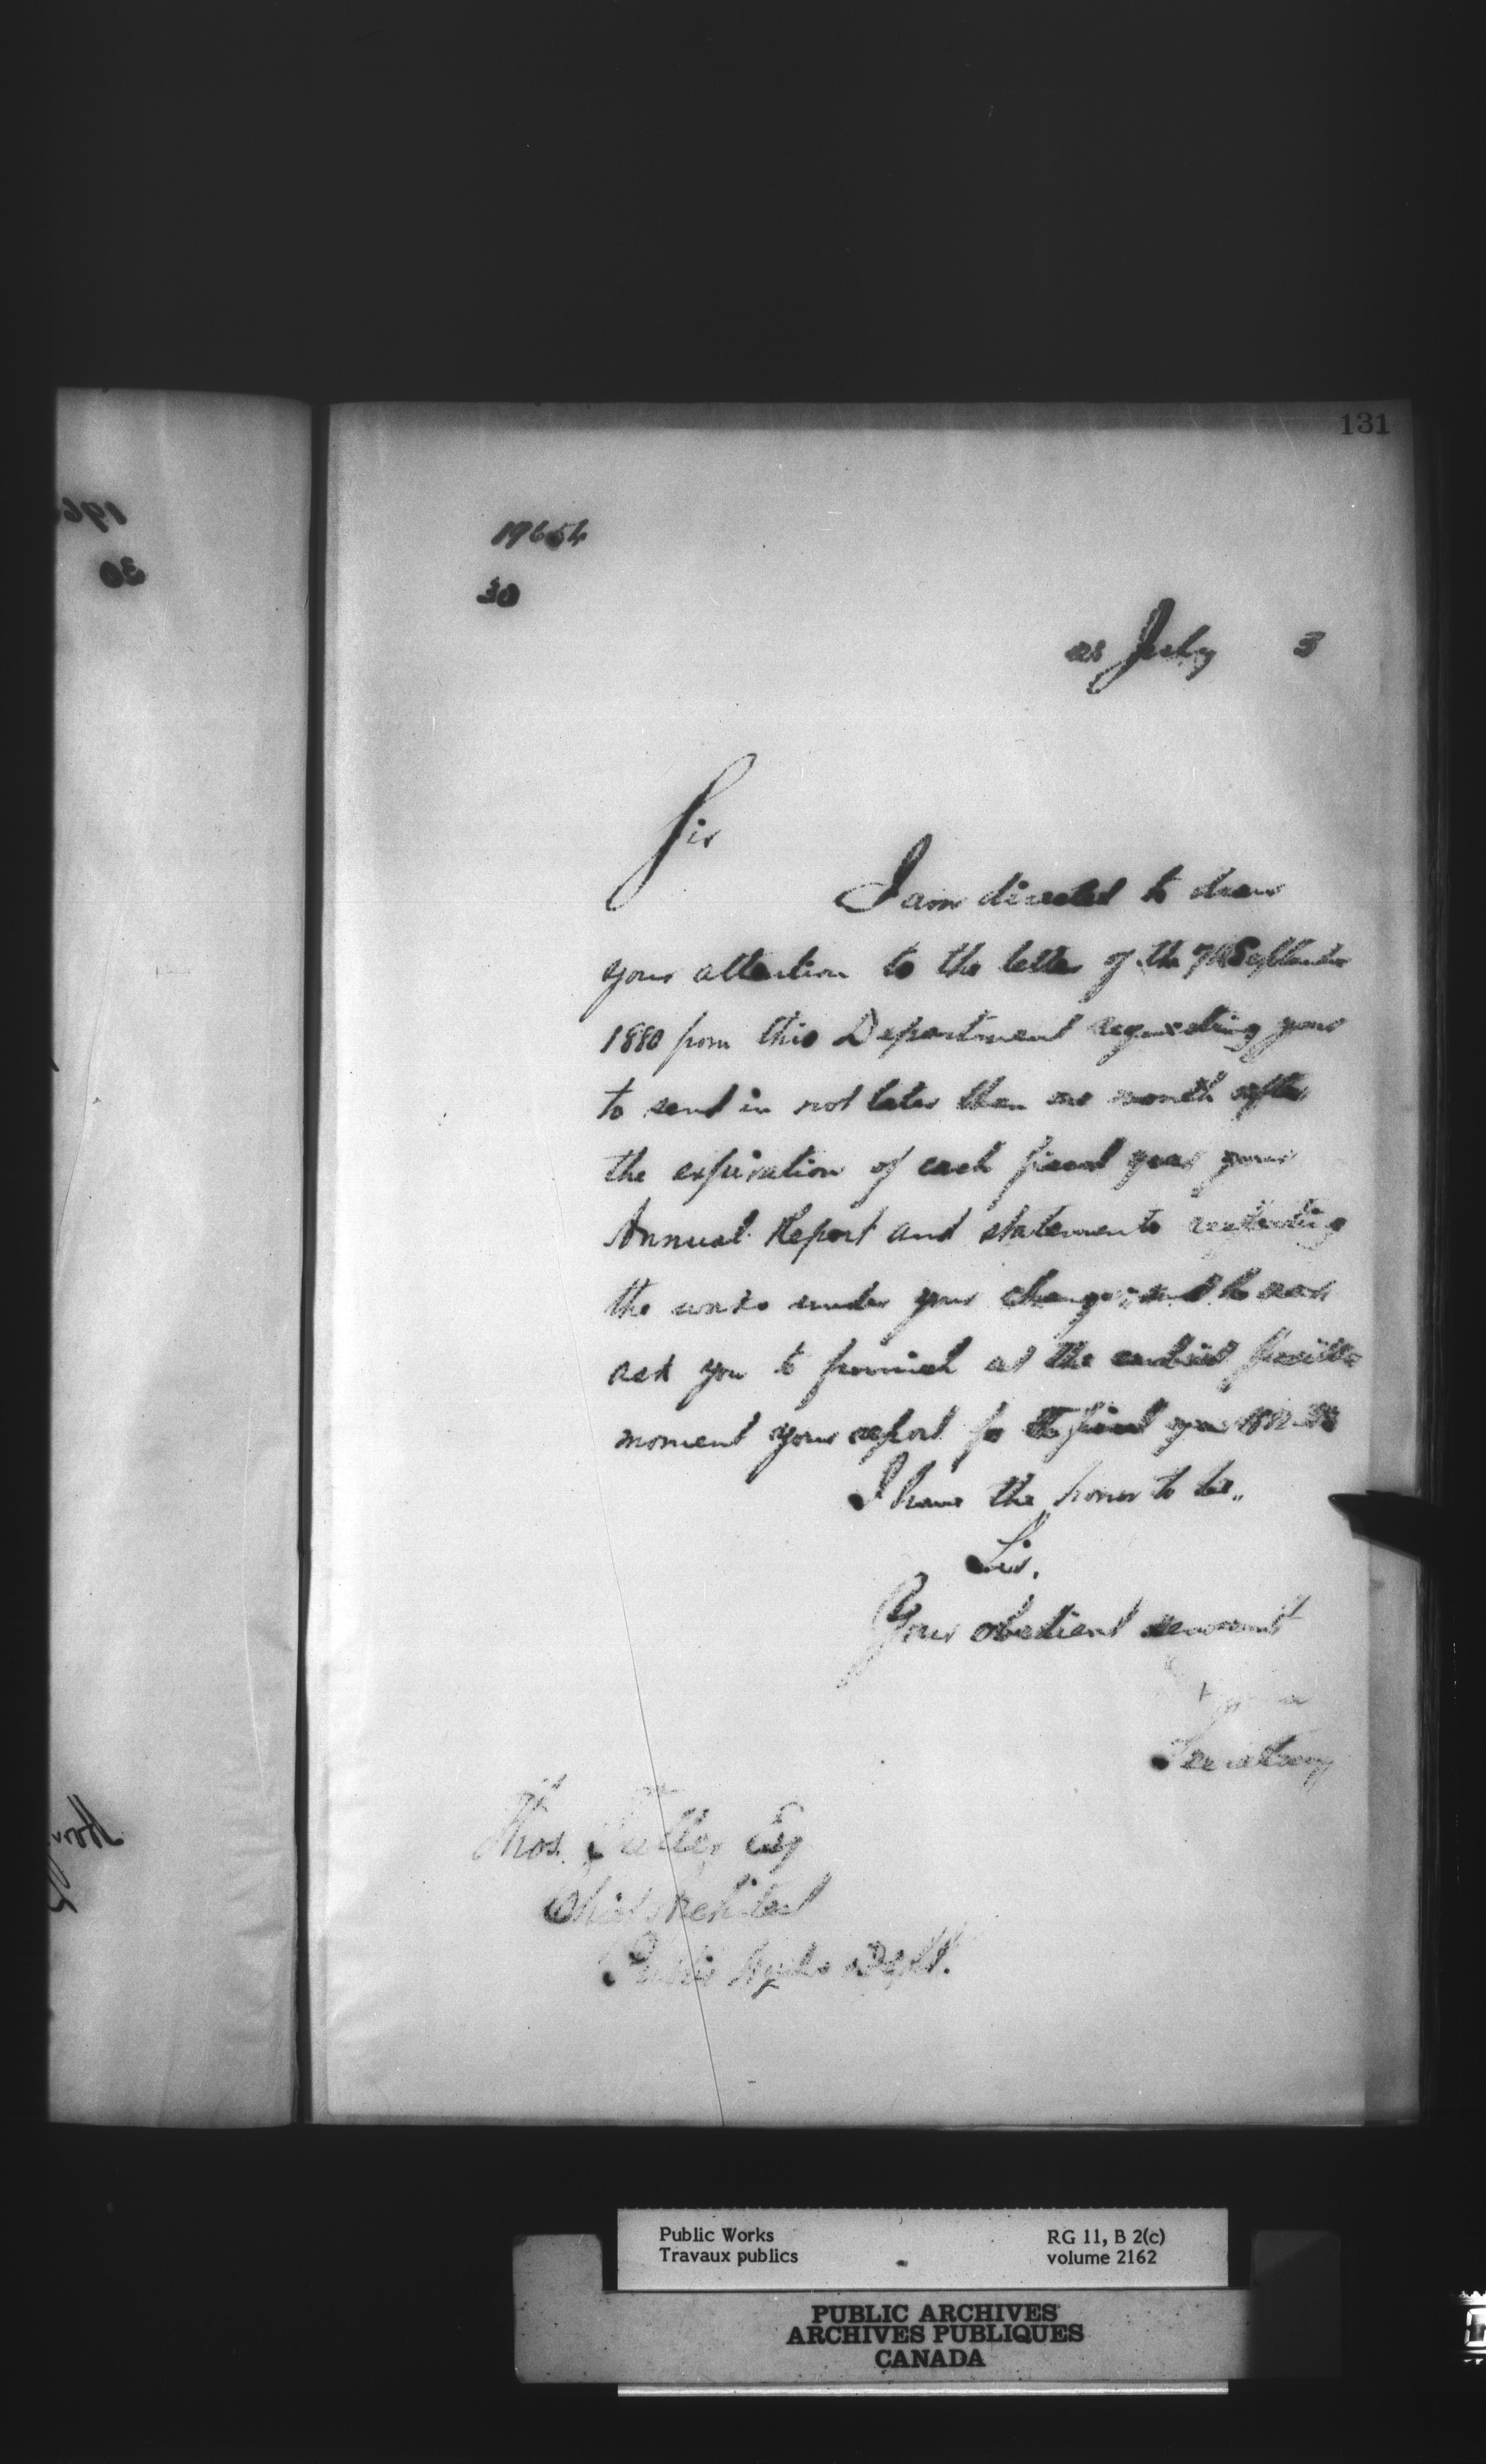 131
19654
30
28 July 3
Sir
I am directed to draw
your attention to the letter of the 7th September
1880 from this Department requesting you
to send in not later than one month after
the expiration of each fiscal year your
Annual Report and statements respecting
the works under your charge; and to now
ask you to furnish at the earliest possible
moment your report for the fiscal year 1882-83
I have the honor to be,
Sir,
Your obedient servant
Secretary
Thos. Fuller Esq
Chief Architect
Public Works Dept.
Public Works
Travaux publics
RG 11, B 2(c)
volume 2162
PUBLIC ARCHIVES
ARCHIVES PUBLIQUES
CANADA